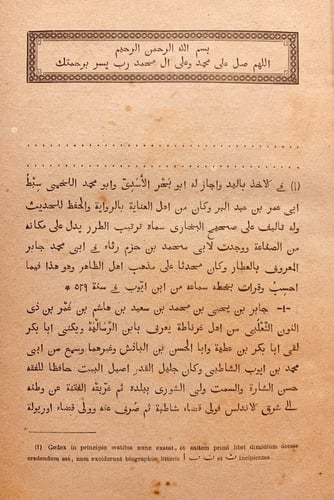 بسم الله الرحمن الرحيم
اللهم صل على محمد وعلى ال محمد رب يسر برحمتك
(1) فى لاخذ باليد واجاز له ابو بحر الأسدى وابو محمد اللخمى سبط
ابى عمر بن عبد البر وكان من اهل العناية بالرواية والحفظ للحديث
وله تاليف على صحيحى البخارى سماه ترتيب الطرر يدل على مكانه
من الصناعة ووجدت لابى محمد بن حزم رثاء فى ابى محمد جابر
المعروف بالعطار وكان محدثا على مذهب اهل الظاهر وهو هذا فيما
احسب وقرات بخطه سماعه من ابن ايوب فى سنة ٥٢٩ *
-1- جابر بن يحيى بن محمد بن سعيد بن هاشم بن عمر بن ذى
النون الثعلبى من اهل غرناطة يعرف بابن الرمالية ويكنى ابا بكر
لقى ابا بكر بن عطية وابا الحسن بن الباذش وغيرهما وسمع من ابى
محمد بن ايوب الشاطبى وكان جليل القدر اصيل البيت حافظا للفقه
حسن الشارة والسمت ولى الشورى ببلده ثم غربته الفتنة عن وطنه
الى شرق لاندلس فولى قضاء شاطبة ثم صرف عنه وولى قضاء اوريولة
(1) Codex in principio mutilus nunc exstat, et saltem primi libri dimidium deesse
credendum est, nam exciderunt biographiæ litteris أ ب ت et ث incipientes